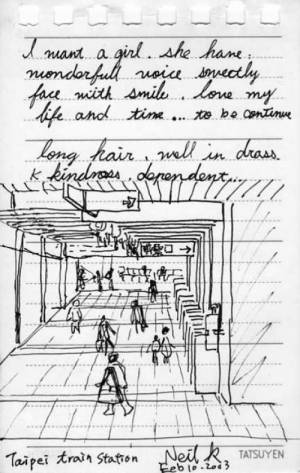 I want a girl. she have:
wonderfull voice swectly
face with smile. love my
life and time... to be continue
long hair. well in drass.
k kindness. dependent...
Taipei train Station
Neil R
Feb 10. 2003
TATSUYEN